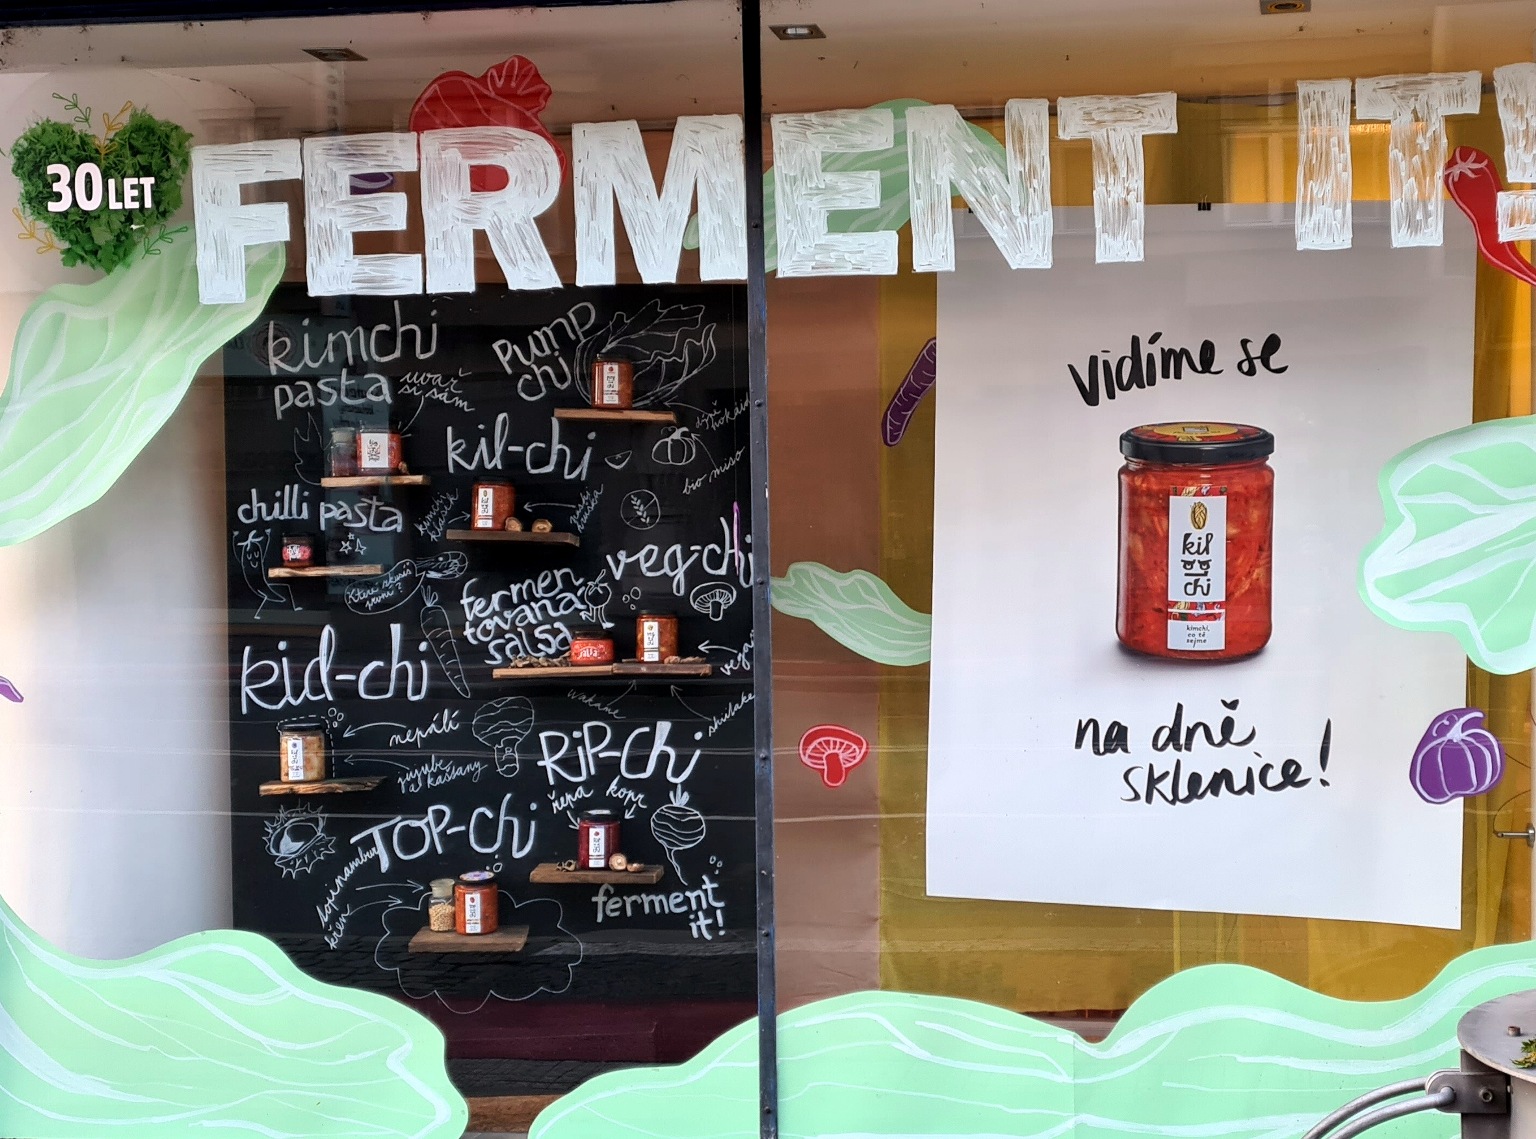 30 LET
FERMENT IT!
kimchi
pasta
uvař
si sám
PUMP
chi
dýně
hokaido
bio miso
kil-chi
chilli pasta
veg-chi
fermen
tovaná
salsa
wakame
shiitake
kid-chi
nepálí
jujube
a kaštany
RiP-Chi
řepa kopr
TOP-Chi
topinambur
křen
ferment
it!
vidíme se
kil
chi
kimchi,
co tě
sejme
na dně
sklenice!